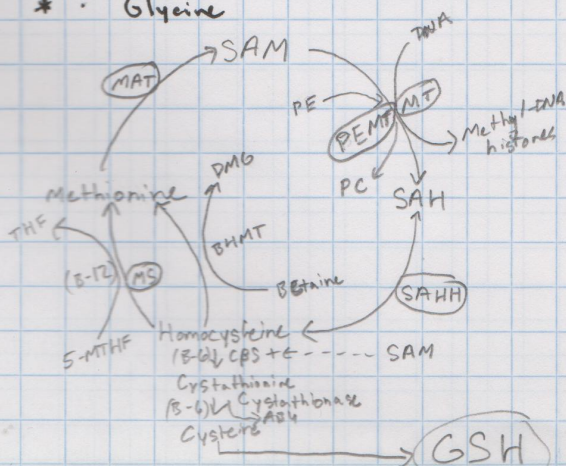 * · Glycine
SAM
DNA
MAT
PE
MT
PEMT
Methyl-DNA
histones
DMG
PC
SAH
Methionine
THF
BHMT
(B-12)
MS
Betaine
SAHH
5-MTHF
Homocysteine
(B-6) CBS + SAM
Cystathionine
(B-6) Cystathionase
Cysteine
GSH